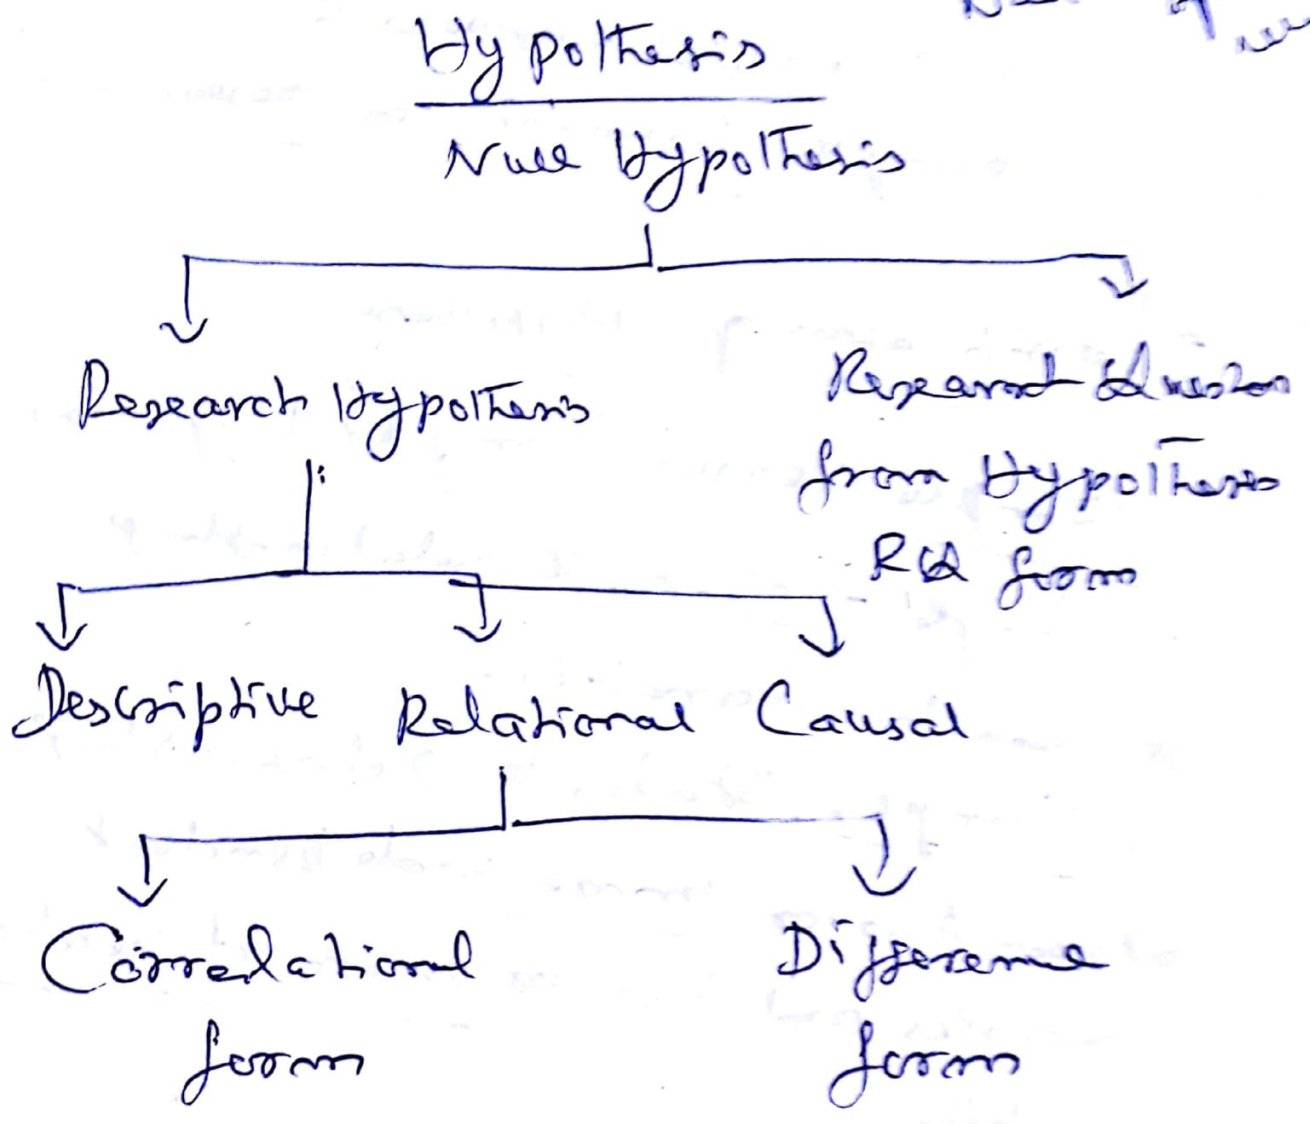 Hypothesis
Null Hypothesis
Research Hypothesis
Research Question
from Hypothesis
RQ form
Descriptive Relational Causal
Correlational
form
Difference
form